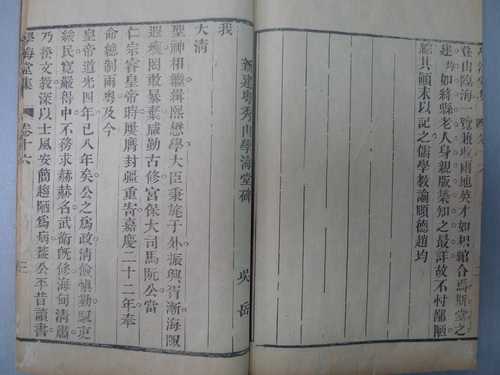 登山臨海一覽兼收兩地英才如相綰合焉斯堂之
建均如絳縣老人身親版築知之最詳故不忖鄙陋
綜其顛末以記之儒學教諭順德趙均
新建粤秀山學海堂碑
吳岳
我
大清
聖神相繼緝熙懋學大臣秉旄于外振興胥漸海隅
遐壤罔敢暴棄咸勤古修宮保大司馬阮公當
仁宗睿皇帝時屢膺封疆重寄嘉慶二十二年奉
命總制兩粤及今
皇帝道光四年已八年矣公之為政清儉慎勤馭吏
綏民寬嚴得中不務求赫赫名武衛旣修海甸清肅
乃揆文教深以士風安簡趨陋為病蓋公平昔讀書
學海堂集
卷十六
三